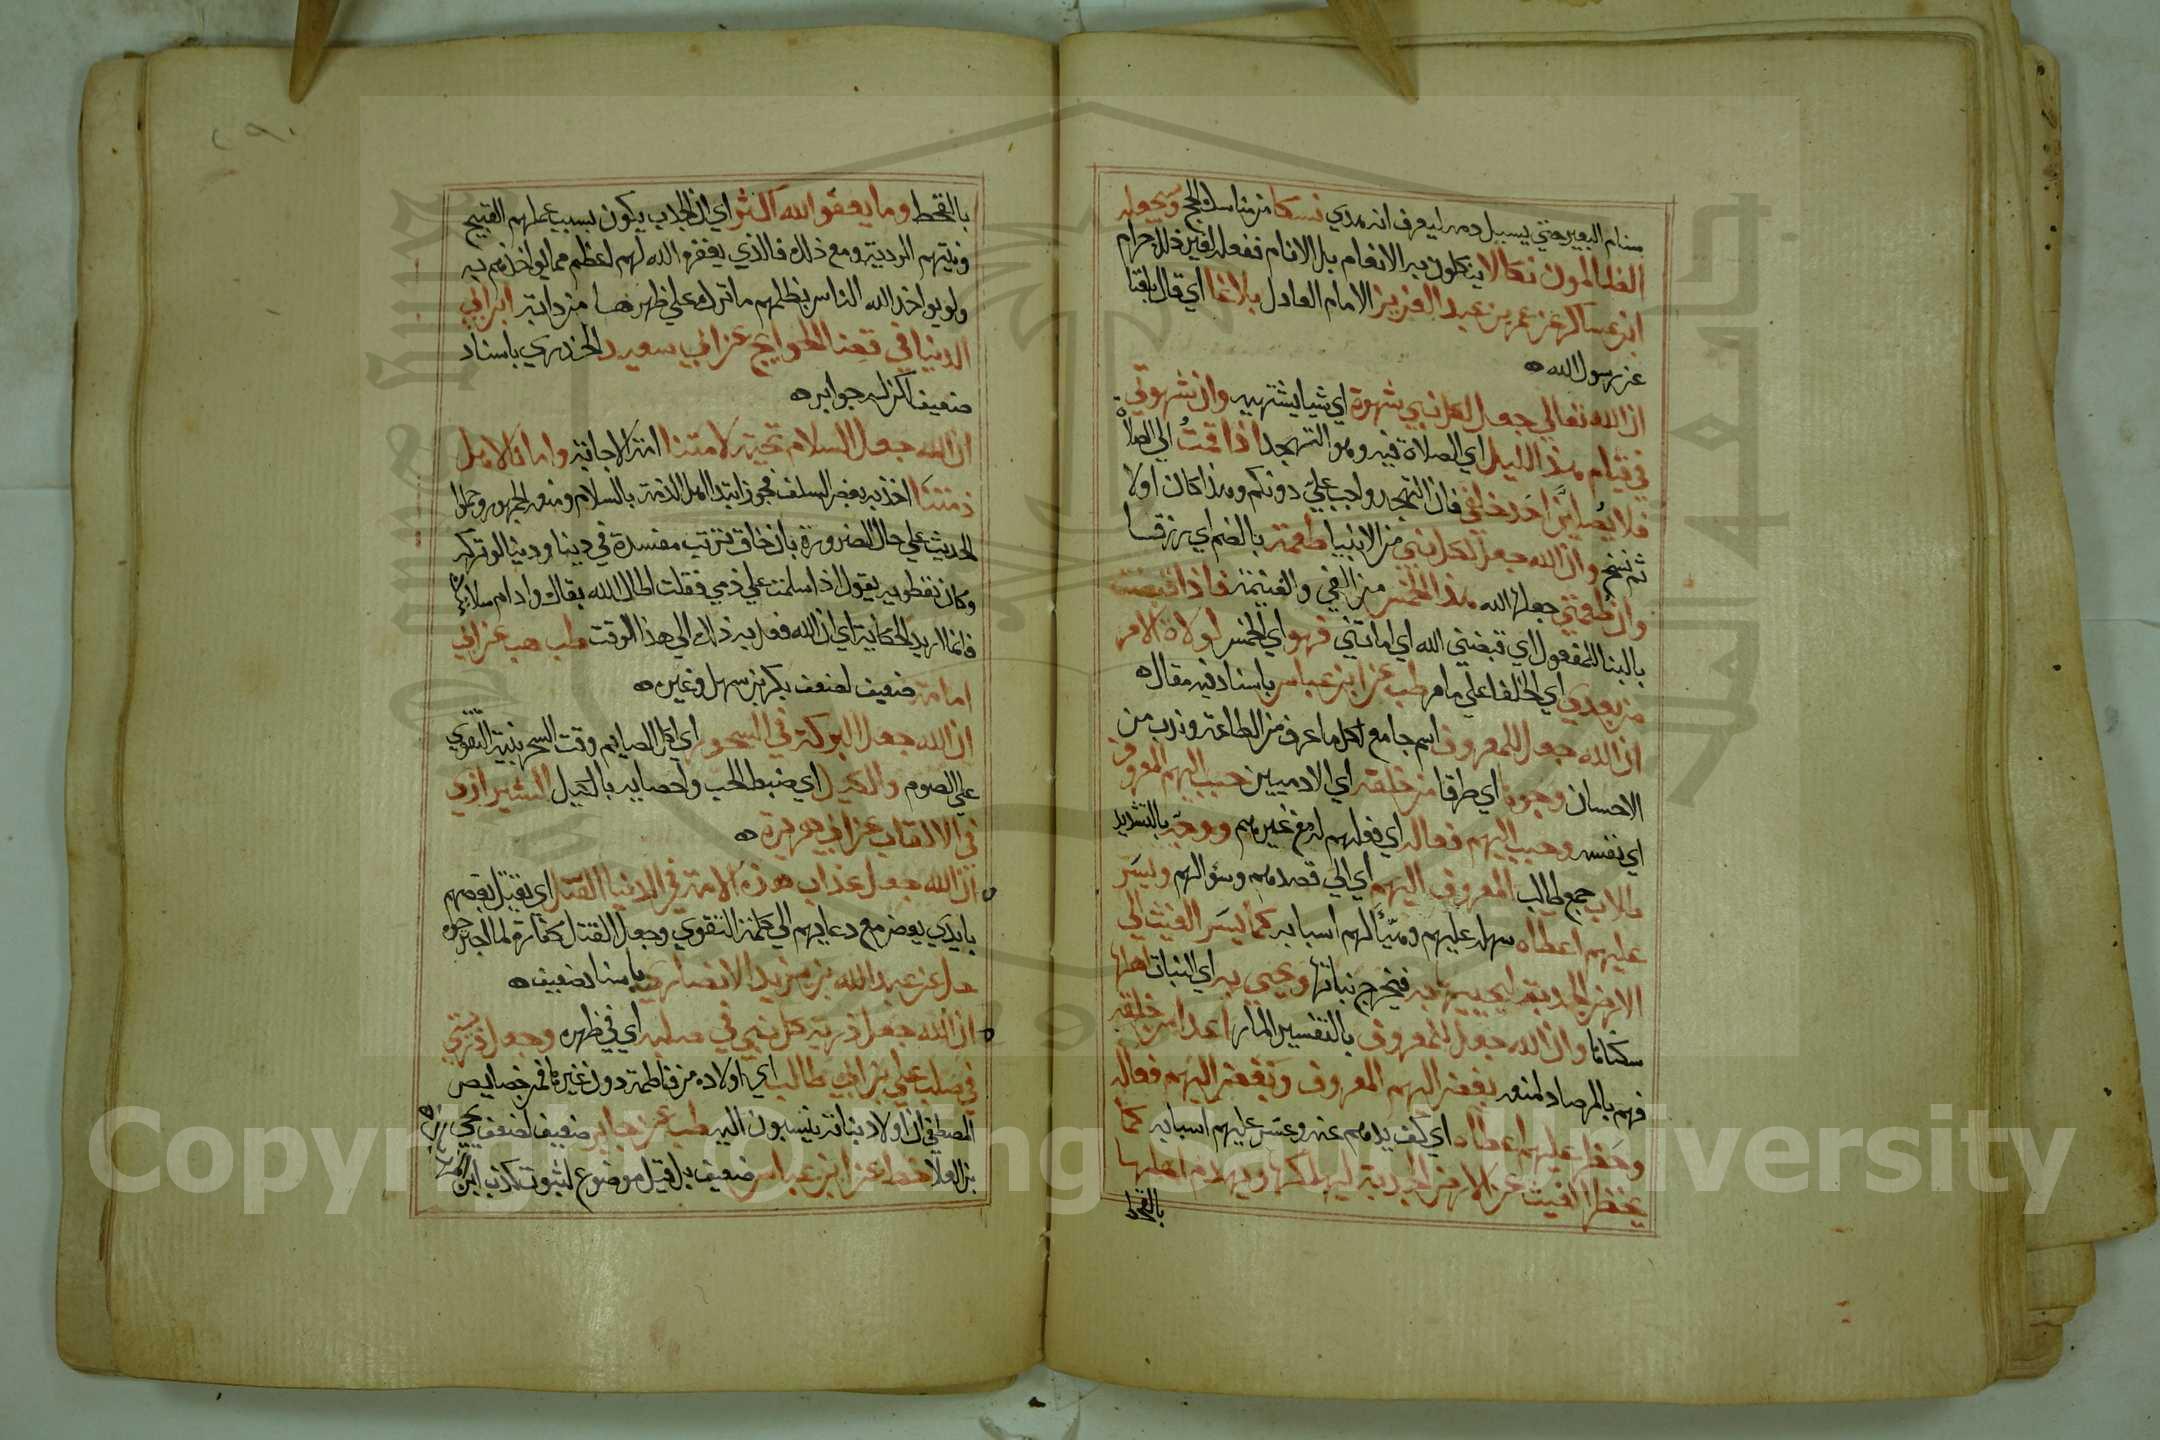 سنام البعير حتي يسيل دمه ليعرف انه هدي نسكا من مناسك الحج وسيجعله
الظالمون نكالا ينكلون به الانعام بل الانام ففعله لغير ذلك حرام
ابن عساكر عن عمر بن عبد العزيز الامام العادل بلاغا اي قال بلغنا
عن رسول الله ه
ان الله تعالي جعل لكل نبي شهوة اي شيا يشتهيه وان شهوتي
في قيام هذا الليل اي الصلاة فيه وهو التهجد اذا قمت الي الصلاة
فلا يصلين احد خلفي فان التهجد واجب علي دونكم وهذا كان اولا
ثم نسخ وان الله جعل لكل نبي من الانبيا طعمة بالضم اي رزقا
وان طعمتي جعلها الله هذا الخمس من الفي والغنيمة فاذا قبضت
بالبنا للمفعول اي قبضني الله اي اماتني فهو اي الخمس لولاة الامر
من بعدي اي الخلفا علي ما مر طب عن ابن عباس باسناد فيه مقال ه
ان الله جعل للمعروف اسم جامع لكل ما عرف من الطاعة وندب من
الاحسان وجوها اي طرقا من خلقه اي الادميين حبب اليهم المعروف
اي نفسه وحبب اليهم فعاله اي فعلهم له مع غيرهم ووجه بالتشديد
طلاب جمع طالب المعروف اليهم اي الي قصدهم وسؤالهم ويسر
عليهم اعطاه سهله عليهم وهيأ لهم اسبابه كما يسر الغيث الي
الارض الجدبة ليحييها به فتخرج نباتها ويحيي به اي النبات اهلها
سكانها وان الله جعل للمعروف بالتفسير المار اعدا من خلقه
فهم بالمرصاد لمنعه بغض اليهم المعروف وبغض اليهم فعاله
وحظر عليهم اعطاه اي كف يدهم عنه وعسر عليهم اسبابه كما
يحظر الغيث عن الارض الجدبة ليهلكها ويهلك اهلها
بالقحط
بالقحط وما يعفوا الله اكثر اي ان الجدب يكون بسبب عملهم القبيح
ونيتهم الردية ومع ذلك فالذي يغفره الله لهم اعظم مما يواخذهم به
ولو يواخذ الله الناس بظلمهم ما ترك علي ظهرها من دابة ابن ابي
الدنيا في قضا الحوايج عن ابي سعيد الخدري باسناد
ضعيف لكن له جوابر ه
ان الله جعل السلام تحية لامتنا امة الاجابة وامانا لاهل
ذمتنا اخذ به بعض السلف فجوز ابتدا اهل الذمة بالسلام ومنعه الجمهور وحملوا
الحديث علي حال الضرورة بان خاف ترتب مفسدة في دين او دنيا لو تركه
وكان نفطويه يقول اذا سلمت علي ذمي فقلت اطال الله بقاك وادام سلامتك
فانما اريد الحكاية اي ان الله فعل به ذلك الي هذا الوقت طب هب عن ابي
امامة ضعيف لضعف بكر بن سهل وغيره ه
ان الله جعل البركة في السحور اي اكل الصايم وقت السحر بنية التقوي
علي الصوم والكيل اي ضبط الحب واحصايه بالكيل الشيرازي
في الالقاب عن ابي هريرة ه
ان الله جعل عذاب هذه الامة في الدنيا القتل اي يقتل بعضهم
بايدي بعض مع دعايهم الي كلمة التقوي وجعل القتل كفارة لما اجترحوه
حل عن عبد الله بن يزيد الانصاري باسناد ضعيف ه
ان الله جعل ذرية كل نبي في صلبه اي في ظهره وجعل ذريتي
في صلب علي بن ابي طالب اي اولاده من فاطمة دون غيرها فمن خصايص
المصطفي ان اولاد بناته ينسبون اليه طب عن جابر ضعيف لضعف يحيي
بن العلا خط عن ابن عباس ضعيف بل قيل موضوع لثبوت كذب ابن
Copyright © King Saud University